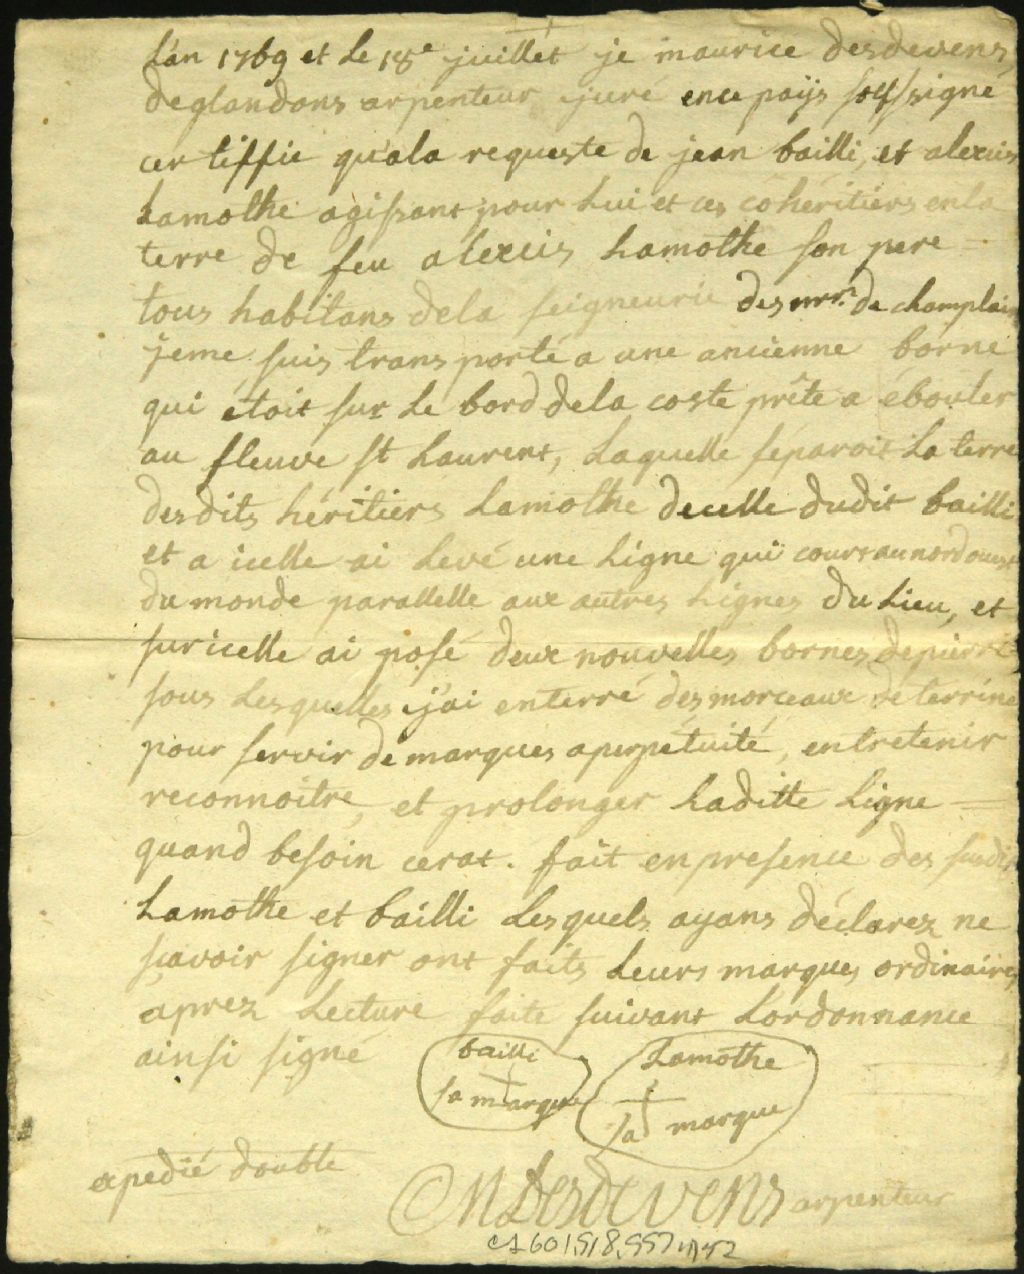 L'an 1769 et Le 18e juillet je maurice desdevens
deglandons arpenteur juré ence païs soussigné
certiffie qu'ala requeste de jean bailli, et alexis
Lamothe agissant pour Lui et ces cohéritiers enla
terre de feu alexis Lamothe son pere
tous habitans dela seigneurie des mrs. de champlain
jeme suis transporté a une ancienne borne
qui étoit sur Le bord dela coste prête a ébouler
au fleuve st Laurent, Laquelle séparoit La terre
desdits héritiers Lamothe decelle dudit bailli
et a icelle ai Levé une Ligne qui court au nord ouest
du monde parallelle aux autres Lignes du Lieu, et
sur icelle ai posé deux nouvelles bornes depierres
sous Lesquelles j'ai enterré des morceaux de terrine
pour servir de marques aperpétuité, entretenir
reconnoitre, et prolonger Laditte Ligne
quand besoin cerat. fait enpresence des susdits
Lamothe et bailli Lesquels ayans déclarez ne
scavoir signer ont faits Leurs marques ordinaires
aprez Lecture faite suivant L'ordonnance
ainsi signé
bailli
sa marque
Lamothe
sa marque
expedié double
M Desdevens arpenteur
CA 601,S18,SS7